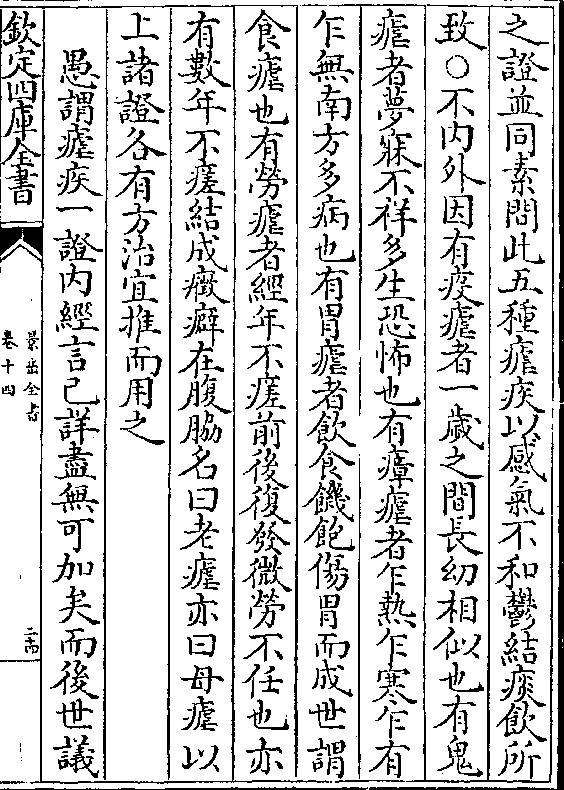 之證並同素問此五種瘧疾以感氣不和鬱結痰飲所
致○不内外因有疫瘧者一歲之間長幼相似也有鬼
瘧者夢寐不祥多生恐怖也有瘴瘧者乍熱乍寒乍有
乍無南方多病也有胃瘧者飲食饑飽傷胃而成世謂
食瘧也有勞瘧者經年不瘥前後復發微勞不任也亦
有數年不瘥結成癥癖在腹脇名曰老瘧亦曰母瘧以
上諸證各有方治宜推而用之
愚謂瘧疾一證内經言已詳盡無可加矣而後世議
欽定四庫全書
景岳全書
卷十四
二十四